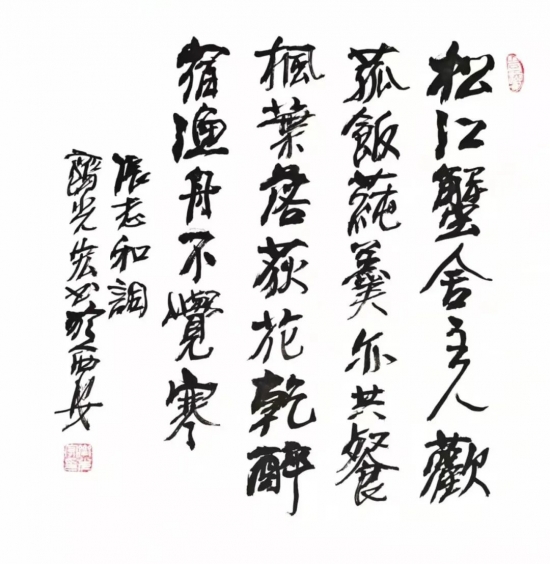 松江蟹舍主人歡
菰飯蓴羹亦共餐
楓葉落荻花乾醉
宿漁舟不覺寒
張志和詞
光宏書於西安